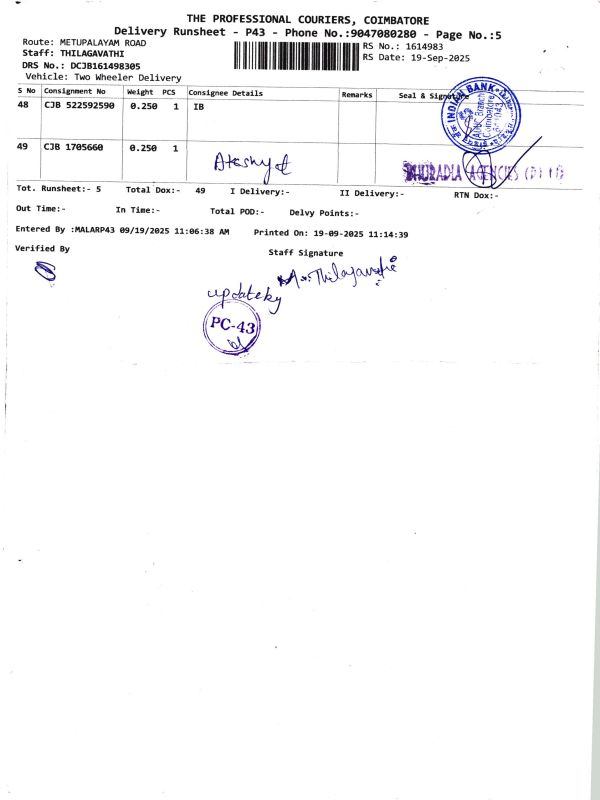 THE PROFESSIONAL COURIERS, COIMBATORE
Delivery Runsheet - P43 - Phone No.:9047080280 - Page No.:5
Route: METUPALAYAM ROAD
RS No.: 1614983
Staff: THILAGAVATHI
RS Date: 19-Sep-2025
DRS No.: DCJB161498305
Vehicle: Two Wheeler Delivery
S No Consignment No Weight PCS Consignee Details Remarks Seal & Signature
48 CJB 522592590 0.250 1 IB
INDIAN BANK
Coimbatore
49 CJB 1705660 0.250 1
AGENCIES (P) LTD
Tot. Runsheet:- 5 Total Dox:- 49 I Delivery:- II Delivery:- RTN Dox:-
Out Time:- In Time:- Total POD:- Delvy Points:-
Entered By :MALARP43 09/19/2025 11:06:38 AM Printed On: 19-09-2025 11:14:39
Verified By
Staff Signature
updateby
PC-43